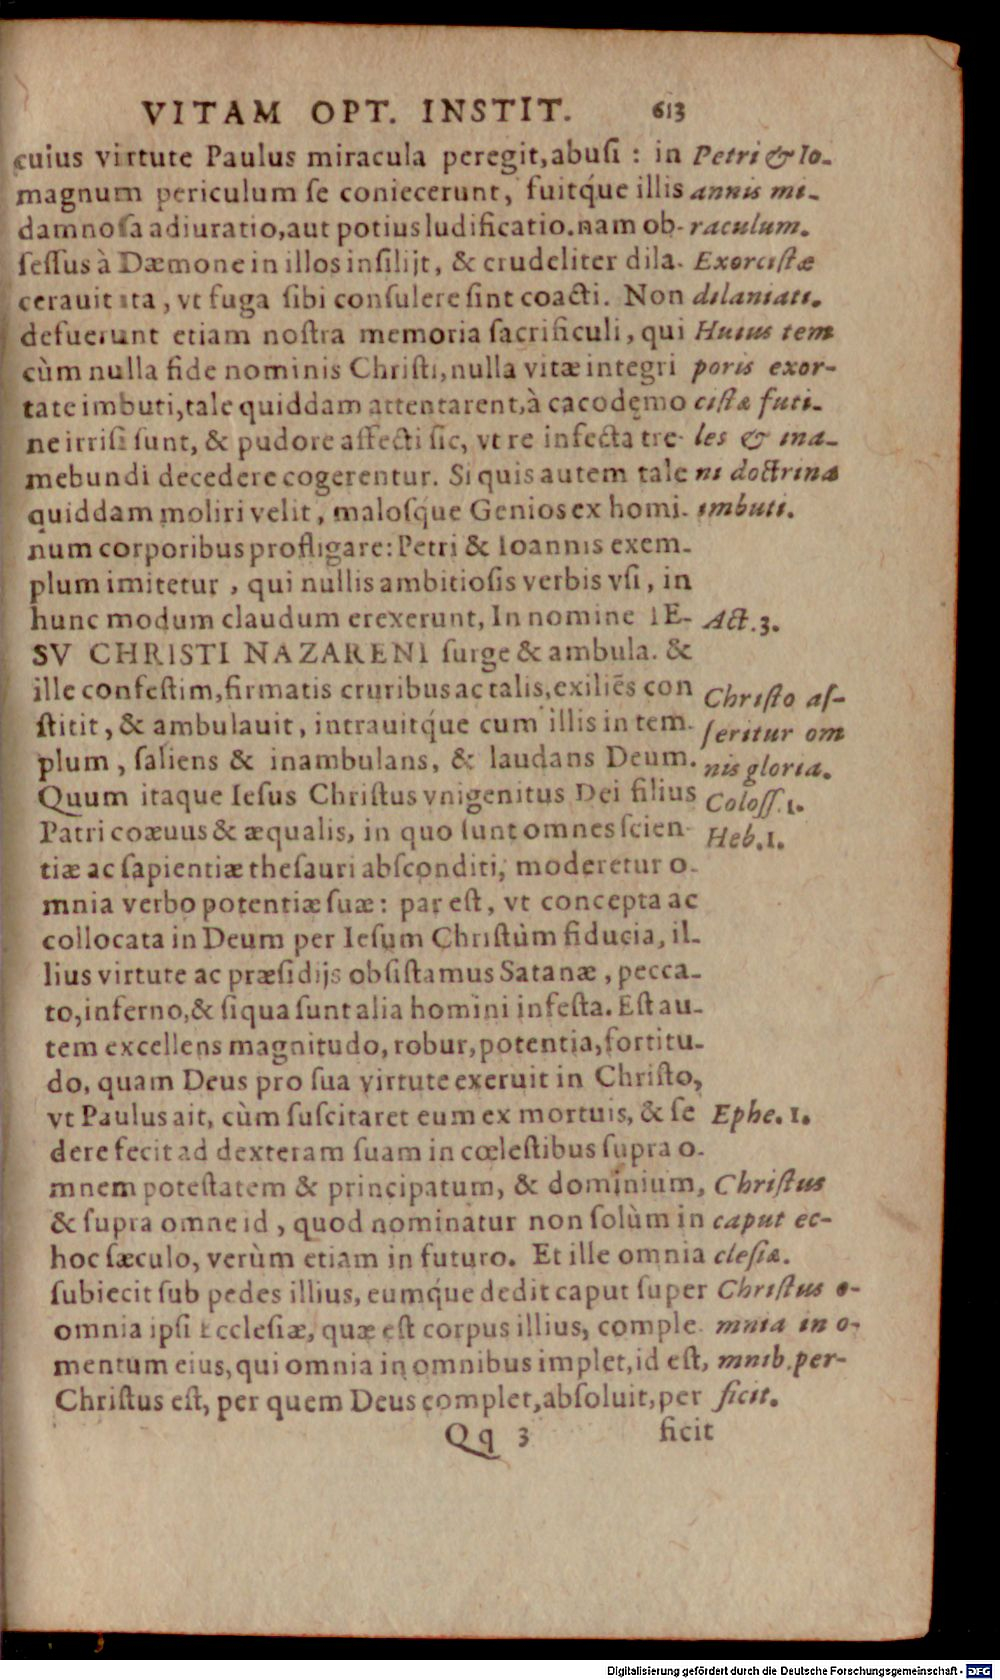 VITAM OPT. INSTIT. 613
cuius virtute Paulus miracula peregit, abusi : in
magnum periculum se coniecerunt, fuitq́ue illis
damnosa adiuratio, aut potius ludificatio. nam ob-
sessus à Dæmone in illos insilijt, & crudeliter dila-
cerauit ita, vt fuga sibi consulere sint coacti. Non
defuerunt etiam nostra memoria sacrificuli, qui
cùm nulla fide nominis Christi, nulla vitæ integri
tate imbuti, tale quiddam attentarent, à cacodęmo
ne irrisi sunt, & pudore affecti sic, vt re infecta tre-
mebundi decedere cogerentur. Si quis autem tale
quiddam moliri velit, malosq́ue Genios ex homi-
num corporibus profligare: Petri & Ioannis exem-
plum imitetur, qui nullis ambitiosis verbis vsi, in
hunc modum claudum erexerunt, In nomine IE-
SV CHRISTI NAZARENI surge & ambula. &
ille confestim, firmatis cruribus ac talis, exiliẽs con
stitit, & ambulauit, intrauitq́ue cum illis in tem-
plum, saliens & inambulans, & laudans Deum.
Quum itaque Iesus Christus vnigenitus Dei filius
Patri coæuus & æqualis, in quo sunt omnes scien-
tiæ ac sapientiæ thesauri absconditi, moderetur o-
mnia verbo potentiæ suæ: par est, vt concepta ac
collocata in Deum per Iesum Christùm fiducia, il-
lius virtute ac præsidijs obsistamus Satanæ, pecca-
to, inferno, & siqua sunt alia homini infesta. Est au-
tem excellens magnitudo, robur, potentia, fortitu-
do, quam Deus pro sua virtute exeruit in Christo,
vt Paulus ait, cùm suscitaret eum ex mortuis, & se
dere fecit ad dexteram suam in cœlestibus supra o-
mnem potestatem & principatum, & dominium,
& supra omne id, quod nominatur non solùm in
hoc sæculo, verùm etiam in futuro. Et ille omnia
subiecit sub pedes illius, eumq́ue dedit caput super
omnia ipsi Ecclesiæ, quæ est corpus illius, comple-
mentum eius, qui omnia in omnibus implet, id est,
Christus est, per quem Deus complet, absoluit, per
Qq 3 ficit
Petri & Io-
annis mi-
raculum.
Exorcistæ
dilaniati.
Huius tem
poris exor-
cistæ futi-
les & ina-
ni doctrina
imbuti.
Act. 3.
Christo as-
seritur om
nis gloria.
Coloss. 1.
Heb. 1.
Ephe. 1.
Christus
caput ec-
clesiæ.
Christus o-
mnia in o-
mnib. per-
ficit.
Digitalisierung gefördert durch die Deutsche Forschungsgemeinschaft - DFG